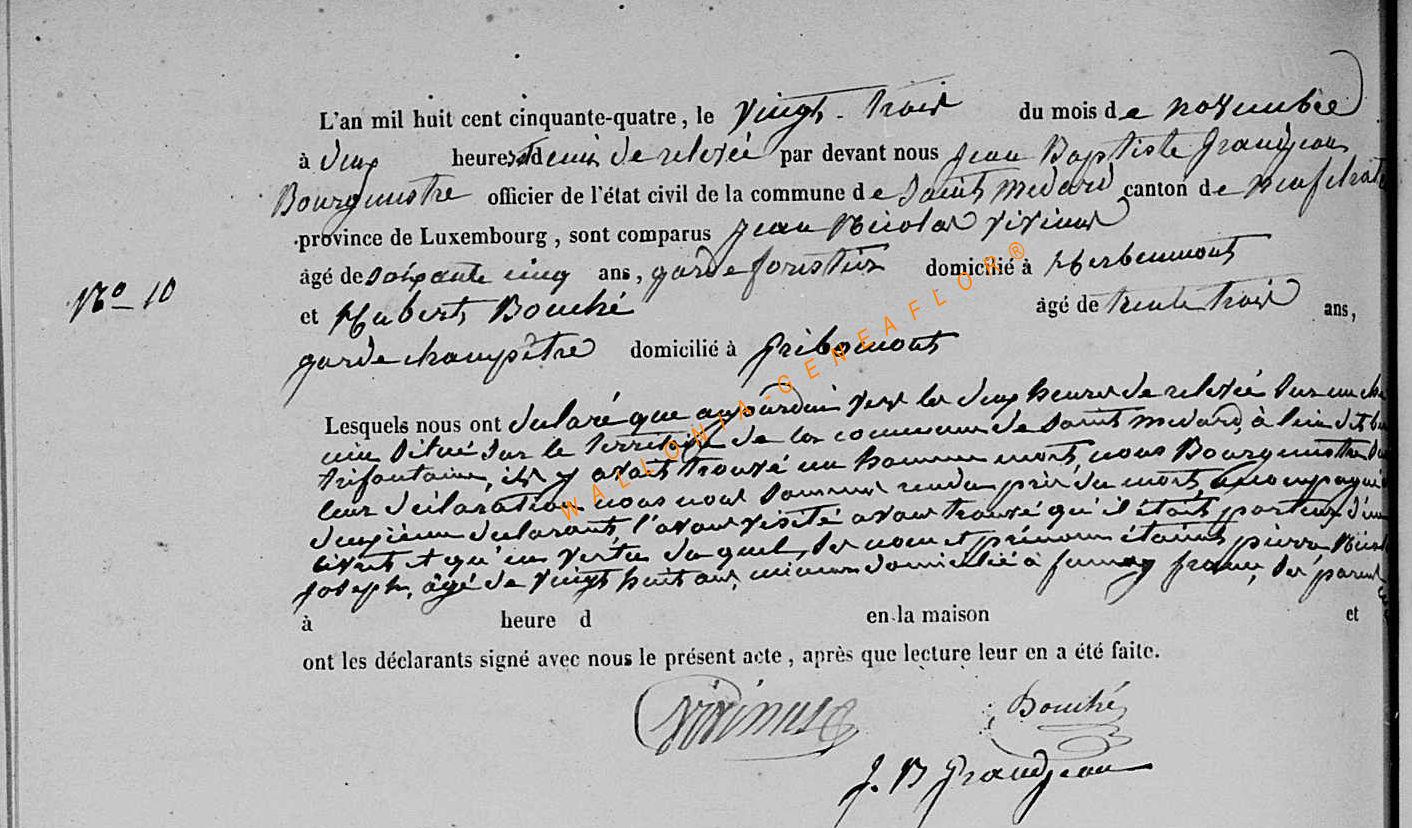 L'an mil huit cent cinquante-quatre, le vingt-trois du mois de novembre
à deux heures et demie de relevée par devant nous Jean Baptiste Grandjean
Bourgmestre officier de l'état civil de la commune de Saint Medard canton de Neufchate
province de Luxembourg, sont comparus Jean Nicolas Vivinus
âgé de soixante cinq ans, garde forestier domicilié à Herbeumont
N° 10
et Hubert Bouché âgé de trente trois ans,
garde champêtre domicilié à Gribomont
Lesquels nous ont declaré que aujourdui vers les deux heures de relevée sur un che
min situé sur le territoire de la commune de Saint Medard, à lieu dit
trifontaine, ils y avait trouvé un homme mort, nous Bourgmestre
leur déclaration nous nous sommes rendu près du mort accompagné
deuxième declarant, l'avons visité avons trouvé qu'il était porteur d'un
livret et qu'en vertu duquel, ses nom et prénom étaient pierre Nicol
Joseph, âgé de vingt huit ans, domicilié à fumay france, ses parens
à heure d en la maison et
ont les déclarants signé avec nous le présent acte, après que lecture leur en a été faite.
Vivinus
Bouché
J. B Grandjean
WALLONIA-GENEAFLOR®